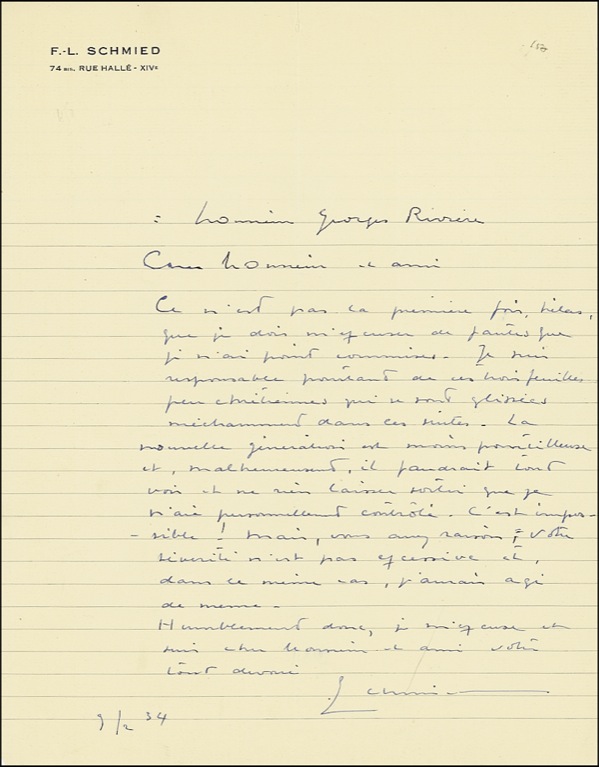 F.-L. SCHMIED
74 BIS, RUE HALLÉ - XIVE
= Monsieur Georges Rivière
Cher Monsieur et ami
Ce n'est pas la première fois, hélas,
que je dois m'excuser de fautes que
je n'ai point commises. Je suis
responsable pourtant de ces trois feuilles
peu chrétiennes qui se sont glissées
méchamment dans ces suites. La
nouvelle génération est moins pointilleuse
et, malheureusement, il faudrait tout
voir et ne rien laisser sortir que je
n'aie personnellement contrôlé. C'est impos-
- sible ! Mais, vous avez raison, votre
sévérité n'est pas excessive et,
dans ce même cas, j'aurais agi
de même.
Humblement donc, je m'excuse et
suis cher Monsieur et ami votre
tout dévoué
Schmied
9/2 34